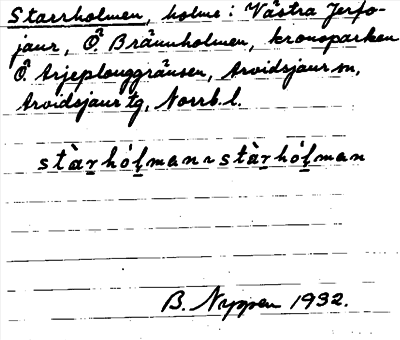 Starrholmen, holme i Västra Jerfo-
jaur, Ö Brännholmen, kronoparken
Ö Arjeplouggränsen, Arvidsjaur sn,
Arvidsjaur tg, Norrb. l.
stàr̲hól̲man ~ stàr̲hól̲man
B. Nyppen 1932.